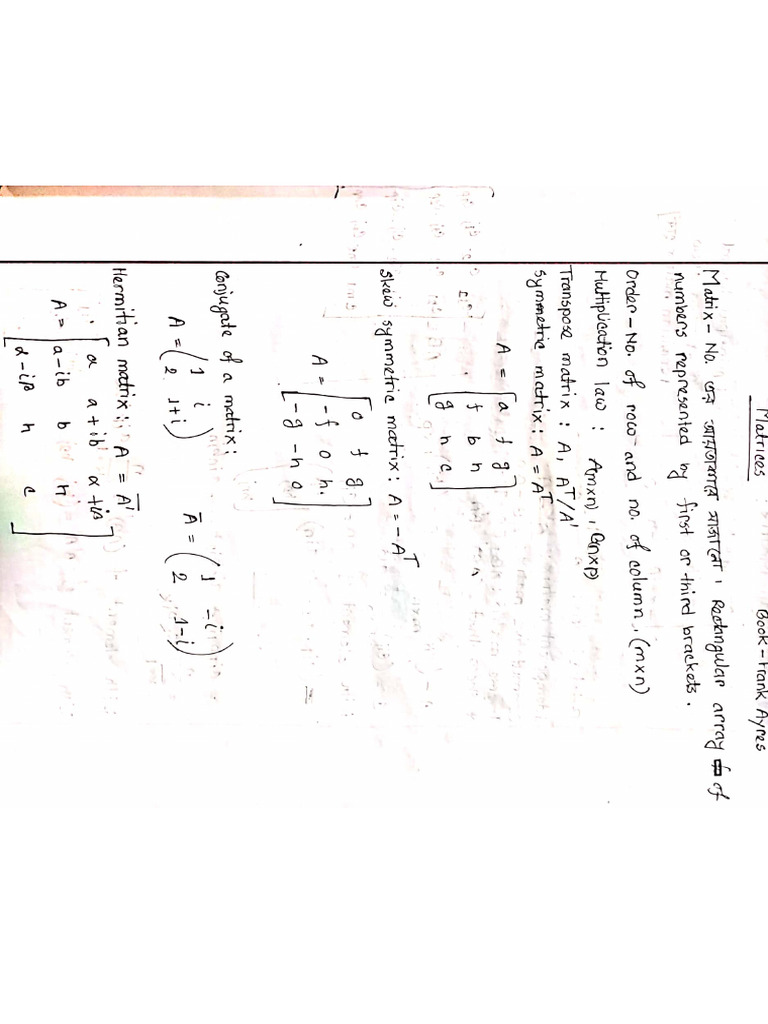 Matrices
Book - Frank Ayres
Matrix - No. এর আয়তাকারে সাজানো। Rectangular array of
numbers represented by first or third brackets.
Order - No. of row and no. of column, (m×n)
Multiplication law : A(m×n), B(n×p)
Transpose matrix : A, Aᵀ/A'
Symmetric matrix : A = Aᵀ
A = [a f g
f b h
g h c]
Skew symmetric matrix : A = -Aᵀ
A = [0 f g
-f 0 h
-g -h 0]
Conjugate of a matrix:
A = (1 i
2 1+i)
Ā = (1 -i
2 1-i)
Hermitian matrix: A = Ā'
A = [a a+ib α+iβ
a-ib b h
α-iβ h c]